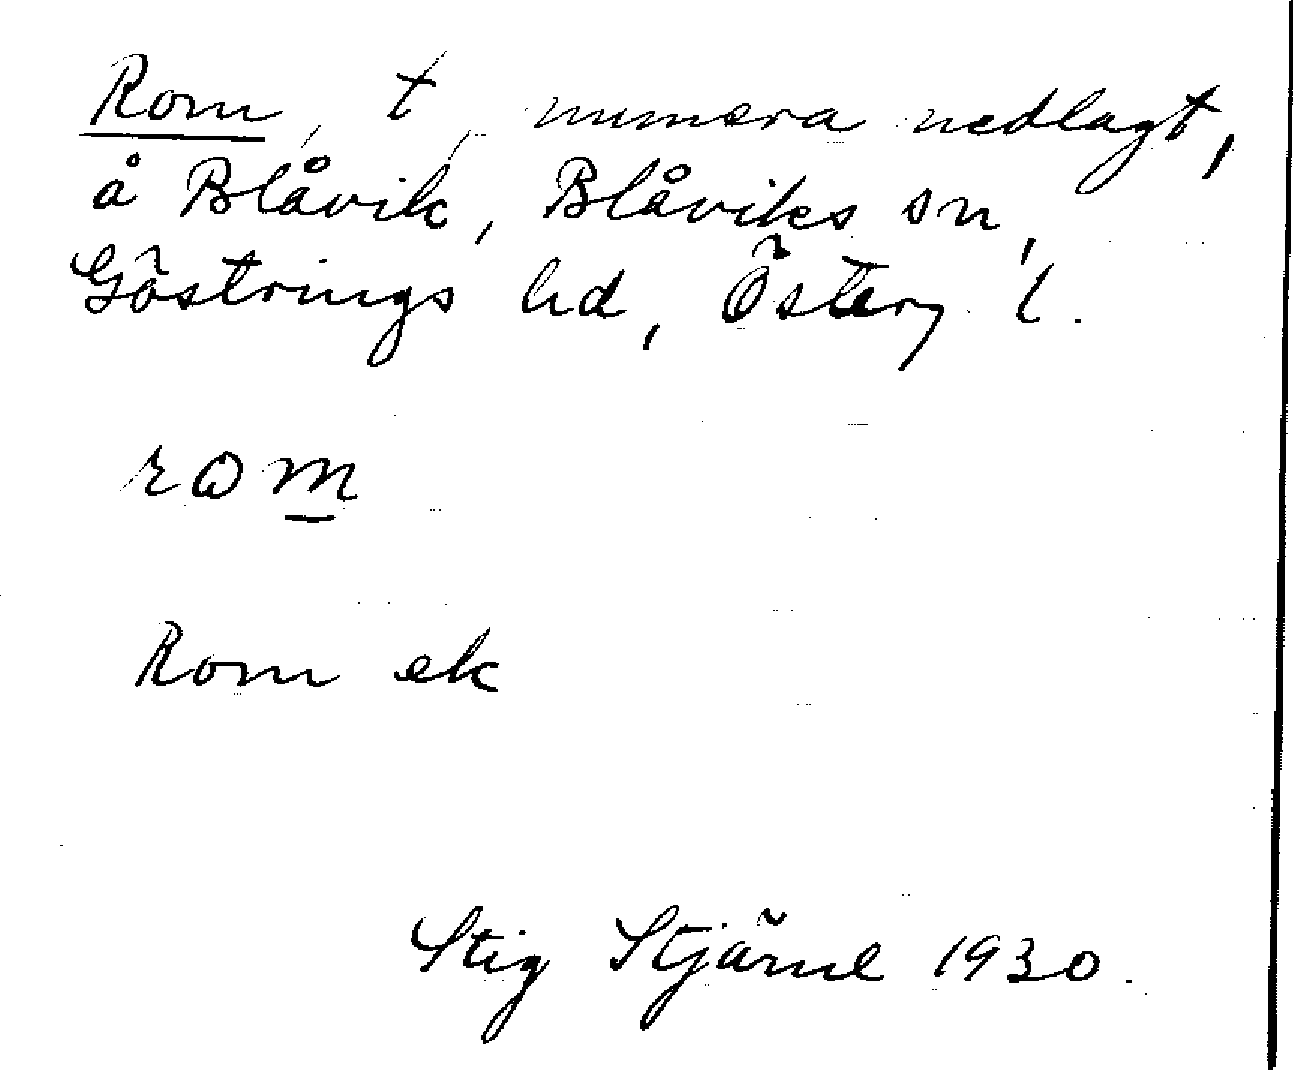 Rom, t, numera nedlagt,
å Blåvik, Blåviks sn,
Göstrings hd, Österg l.
rωm
Rom ek
Stig Stjärne 1930.